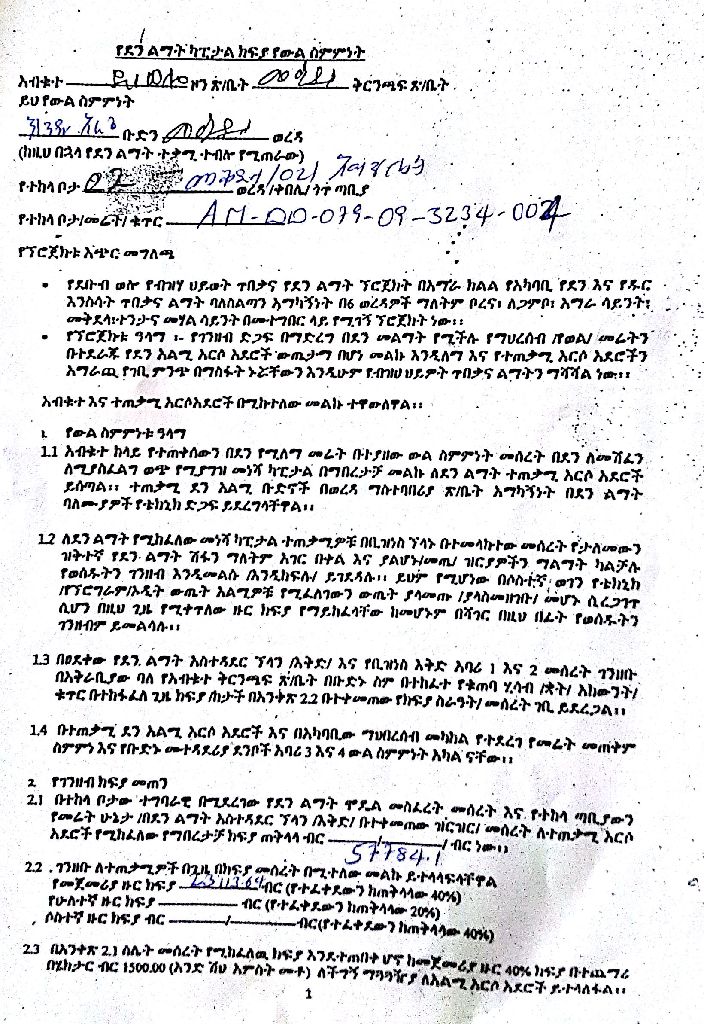 የደን ልማት ካፒታል ክፍያ የውል ስምምነት
አብቁተ ዞን ጽ/ቤት ቅርንጫፍ ጽ/ቤት
ይህ የውል ስምምነት
ቡድን ወረዳ
(ከዚህ በኋላ የደን ልማት ተቃሚ ተብሎ የሚጠራው)
የተከላ ቦታ ወረዳ/ቀበሌ/ ጎጥ ጣቢያ
የተከላ ቦታ/መሬት/ ቁጥር AM-DD-079-09-3234-002
የፕሮጀክቱ አጭር መግለጫ
• የደቡብ ወሎ የብዝሃ ህይወት ጥበቃና የደን ልማት ፕሮጀክት በአማራ ክልል የአካባቢ የደን እና የዱር
እንስሳት ጥበቃና ልማት ባለስልጣን አማካኝነት በ6 ወረዳዎች ማለትም ቦረና፣ ሌጋምቦ፣ አማራ ሳይንት፣
መቅደላ፣ተንታና መሃል ሳይንት በመተግበር ላይ የሚገኝ ፕሮጀክት ነው፡፡
• የፕሮጀክቱ ዓላማ ፡- የገንዘብ ድጋፍ በማድረግ በደን መልማት የሚችሉ የማህረሰብ /የወል/ መሬትን
በተደራጁ የደን አልሚ አርሶ አደሮች ውጤታማ በሆነ መልኩ እንዲለማ እና የተጠቃሚ አርሶ አደሮችን
አማራጪ የገቢ ምንጭ በማስፋት ኑሯቸውን እንዲሁም የብዝሀ ህይዎት ጥበቃና ልማትን ማሻሻል ነው፡፡
አብቁተ እና ተጠቃሚ አርሶአደሮች በሚከተለው መልኩ ተዋውለዋል፡፡
1. የውል ስምምነቱ ዓላማ
1.1 አብቁተ ከላይ የተጠቀሰውን በደን የሚለማ መሬት በተያዘው ውል ስምምነት መሰረት በደን ለመሸፈን
ለሚያስፈልግ ወጭ የሚያግዝ መነሻ ካፒታል በማበረታቻ መልኩ ለደን ልማት ተጠቃሚ አርሶ አደሮች
ይሰጣል፡፡ ተጠቃሚ ደን አልሚ ቡድኖች በወረዳ ማስተባበሪያ ጽ/ቤት አማካኝነት በደን ልማት
ባለሙያዎች የቴክኒክ ድጋፍ ይደረግላቸዋል፡፡
1.2 ለደን ልማት የሚከፈለው መነሻ ካፒታል ተጠቃሚዎቹ በቢዝነስ ፕላኑ በተመላከተው መሰረት የታለመውን
ዝቅተኛ የደን ልማት ሽፋን ማለትም አገር በቀል እና ያልሆኑ/መጤ/ ዝርያዎችን ማልማት ካልቻሉ
የወሰዱትን ገንዘብ እንዲመልሱ /እንዲከፍሉ/ ይገደዳሉ፡፡ ይህም የሚሆነው በሶስተኛ ወገን የቴክኒክ
/የፕሮግራም/ኦዲት ውጤት አልሚዎቹ የሚፈለገውን ውጤት ያላመጡ /ያላስመዘገቡ/ መሆኑ ሲረጋገጥ
ሲሆን በዚህ ጊዜ የሚቀጥለው ዙር ክፍያ የማይከፈላቸው ከመሆኑም በሻገር በዚህ በፊት የወሰዱትን
ገንዘብም ይመልሳሉ፡፡
1.3 በፀደቀው የደን ልማት አስተዳደር ፕላን /እቅድ/ እና የቢዝነስ እቅድ አባሪ 1 እና 2 መሰረት ገንዘቡ
በአቅራቢያው ባለ የአብቁተ ቅርንጫፍ ጽ/ቤት በቡድኑ ስም በተከፈተ የቁጠባ ሂሳብ /ቋት/ አካውንት/
ቁጥር በተከፋፈለ ጊዜ ክፍያ /ከታች በአንቀጽ 2.2 በተቀመጠው የክፍያ ስርዓት/ መሰረት ገቢ ይደረጋል፡፡
1.4 በተጠቃሚ ደን አልሚ አርሶ አደሮች እና በአካባቢው ማህበረሰብ መካከል የተደረገ የመሬት መጠቀም
ስምምነ እና የቡድኑ መተዳደሪያ ደንቦች አባሪ 3 እና 4 ውል ስምምነት አካል ናቸው፡፡
2. የገንዘብ ክፍያ መጠን
2.1 በተከላ ቦታው ተግባራዊ በሚደረገው የደን ልማት ሞዴል መስፈረት መሰረት እና የተከላ ጣቢያውን
የመሬት ሁኔታ /በደን ልማት አስተዳደር ፕላን /እቅድ/ በተቀመጠው ዝርዝር/ መሰረት ለተጠቃሚ አርሶ
አደሮች የሚከፈለው የማበረታቻ ክፍያ ጠቅላላ ብር / / ብር ነው፡፡
57784.1
2.2 . ገንዘቡ ለተጠቃሚዎች በጊዜ በክፍያ መሰረት በሚተለው መልኩ ይተላፍላቸዋል
የመጀመሪያ ዙር ክፍያ 23113.64 ብር (የተፈቀደውን ከጠቅላላው 40%)
የሁለተኛ ዙር ክፍያ ብር (የተፈቀደውን ከጠቅላላው 20%)
ሶስተኛ ዙር ክፍያ ብር / ብር(የተፈቀደውን ከጠቅላላው 40%)
2.3 በአንቀጽ 2.1 ስሌት መሰረት የሚከፈለዉ ክፍያ እንደተጠበቀ ሆኖ ከመጀመሪያ ዙር 40% ክፍያ በተጨማሪ
በሄክታር ብር 1500.00 (አንድ ሽህ አምስት መቶ) ለችግኝ ማጓጓዣያ ለአልሚ አርሶ አደሮች ይተላለፋል፡፡
1